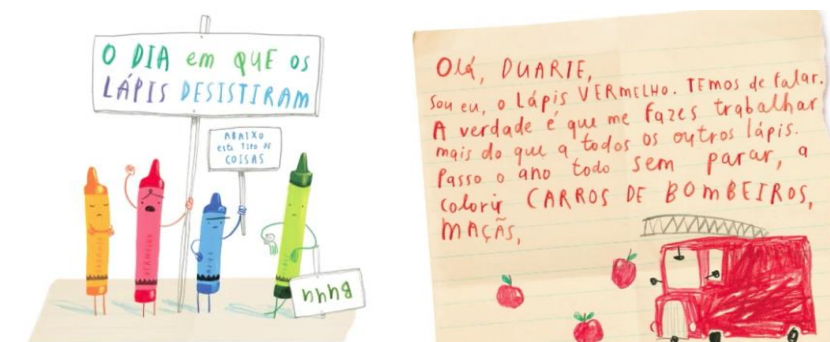 O DIA em QUE os
LÁPIS DESISTIRAM
ABAIXO
este TIPO DE
COISAS
BUUU
Olá, DUARTE,
sou eu, o Lápis VERMELHO. TEMOS de falar.
A verdade é que me fazes trabalhar
mais do que a todos os outros lápis.
Passo o ano todo sem parar, a
colorir CARROS DE BOMBEIROS,
MAÇÃS,